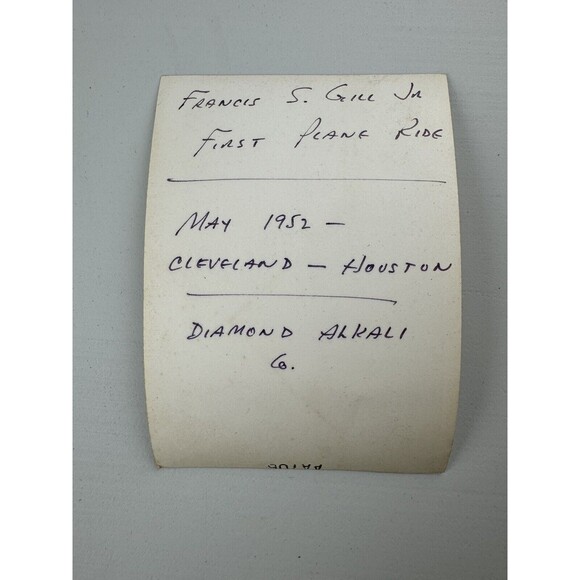 Francis S. Gill Jr
First Plane Ride
May 1952 –
Cleveland – Houston
Diamond Alkali
Co.